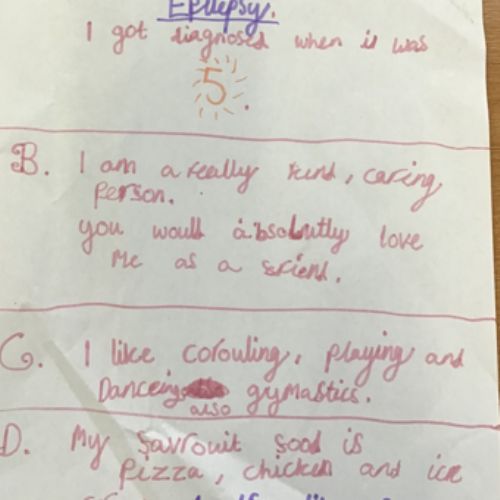 Epilepsy.
I got diagnosed when it was
5.
B. I am a really kind, caring
person.
you would absolutly love
me as a friend.
C. I like corouling, playing and
Danceing gymastics.
also
D. My favrouit food is
pizza, chicken and ice